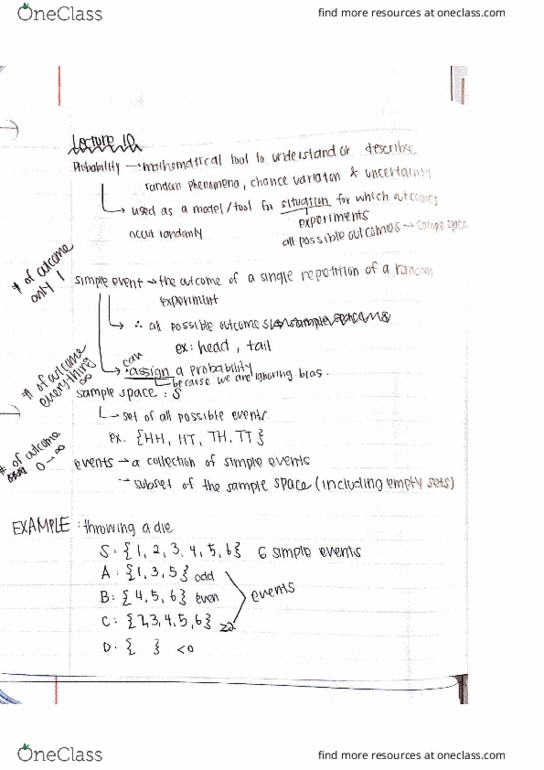 OneClass
find more resources at oneclass.com
Lecture 10
Probability → mathematical tool to understand or describe
random phenomena, chance variation & uncertainty
used as a model/tool for situation for which outcomes
occur randomly
experiments
all possible outcomes → sample space
# of outcome
only 1
simple event → the outcome of a single repetition of a random
experiment
∴ all possible outcomes
ex: head, tail
can
assign a probability
because we are ignoring bias.
# of outcome
everything
∞
sample space : S
set of all possible events.
ex. {HH, HT, TH, TT}
# of outcome
0 → ∞
events → a collection of simple events
→ subset of the sample space (including empty sets)
EXAMPLE : throwing a die
S: {1, 2, 3, 4, 5, 6} 6 simple events
A: {1, 3, 5} odd
B: {4, 5, 6} even
events
C: {2,3,4,5,6} ≥2
D: { } <0
OneClass
find more resources at oneclass.com